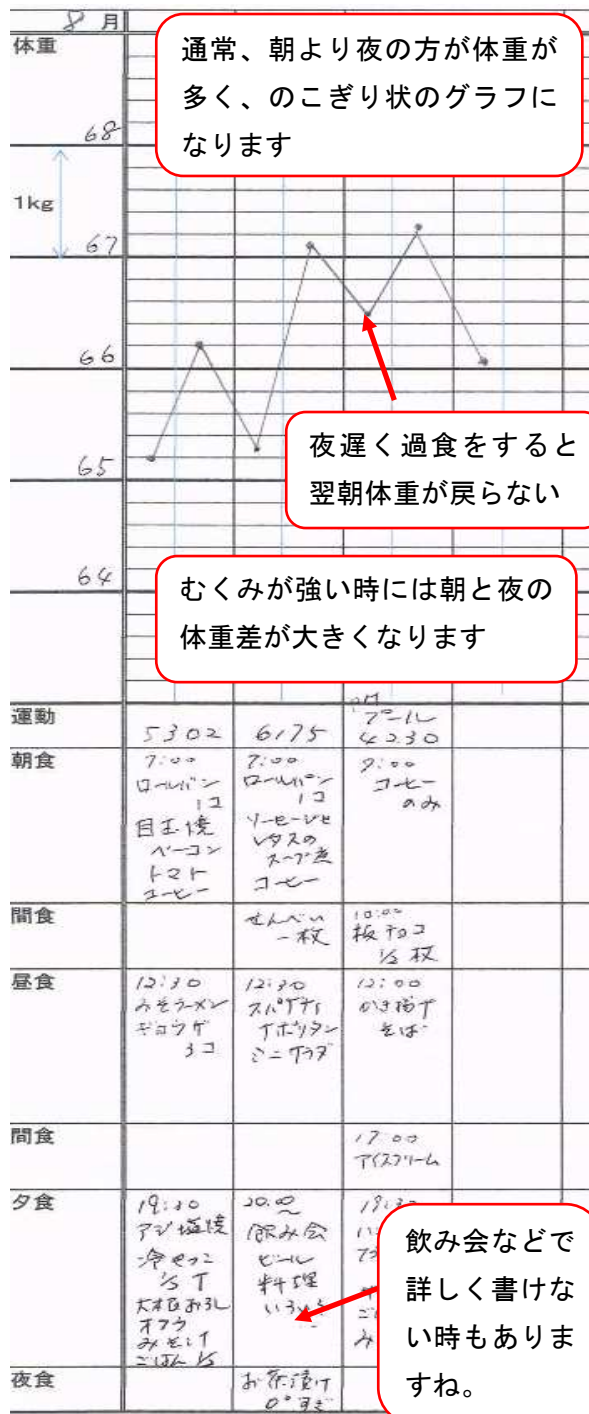 8月
体重
通常、朝より夜の方が体重が
多く、のこぎり状のグラフに
なります
68
1kg
67
66
夜遅く過食をすると
翌朝体重が戻らない
65
64
むくみが強い時には朝と夜の
体重差が大きくなります
運動
5302
6175
PM
プール
4230
朝食
7:00
ロールパン
1コ
目玉焼
ベーコン
トマト
コーヒー
7:00
ロールパン
1コ
レタスの
コーヒー
9:00
コーヒー
のみ
間食
せんべい
一枚
10:00
板チョコ
1/2枚
昼食
12:30
みそラーメン
ギョウザ
3コ
12:30
スパゲティ
ナポリタン
ミニサラダ
12:00
かき揚げ
そば
間食
17:00
アイスクリーム
夕食
19:30
アジ塩焼
冷やっこ
1/2丁
大根おろし
オクラ
みそ汁
ごはん1/2
20:00
～
飲み会
ビール
料理
いろいろ
飲み会などで
詳しく書けな
い時もありま
すね。
夜食
お茶漬け
0°すぎ